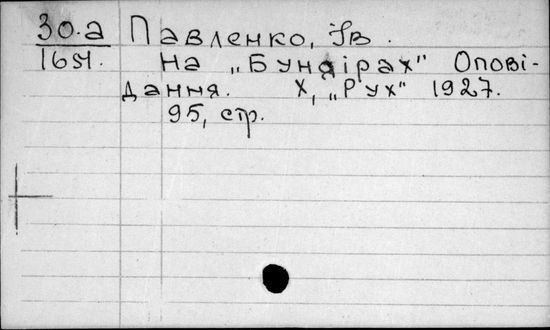 30.а Павленко, Ів.
1651. На „Бундірах" Опові-
дання. Х, „Рух" 1927.
95, стр.